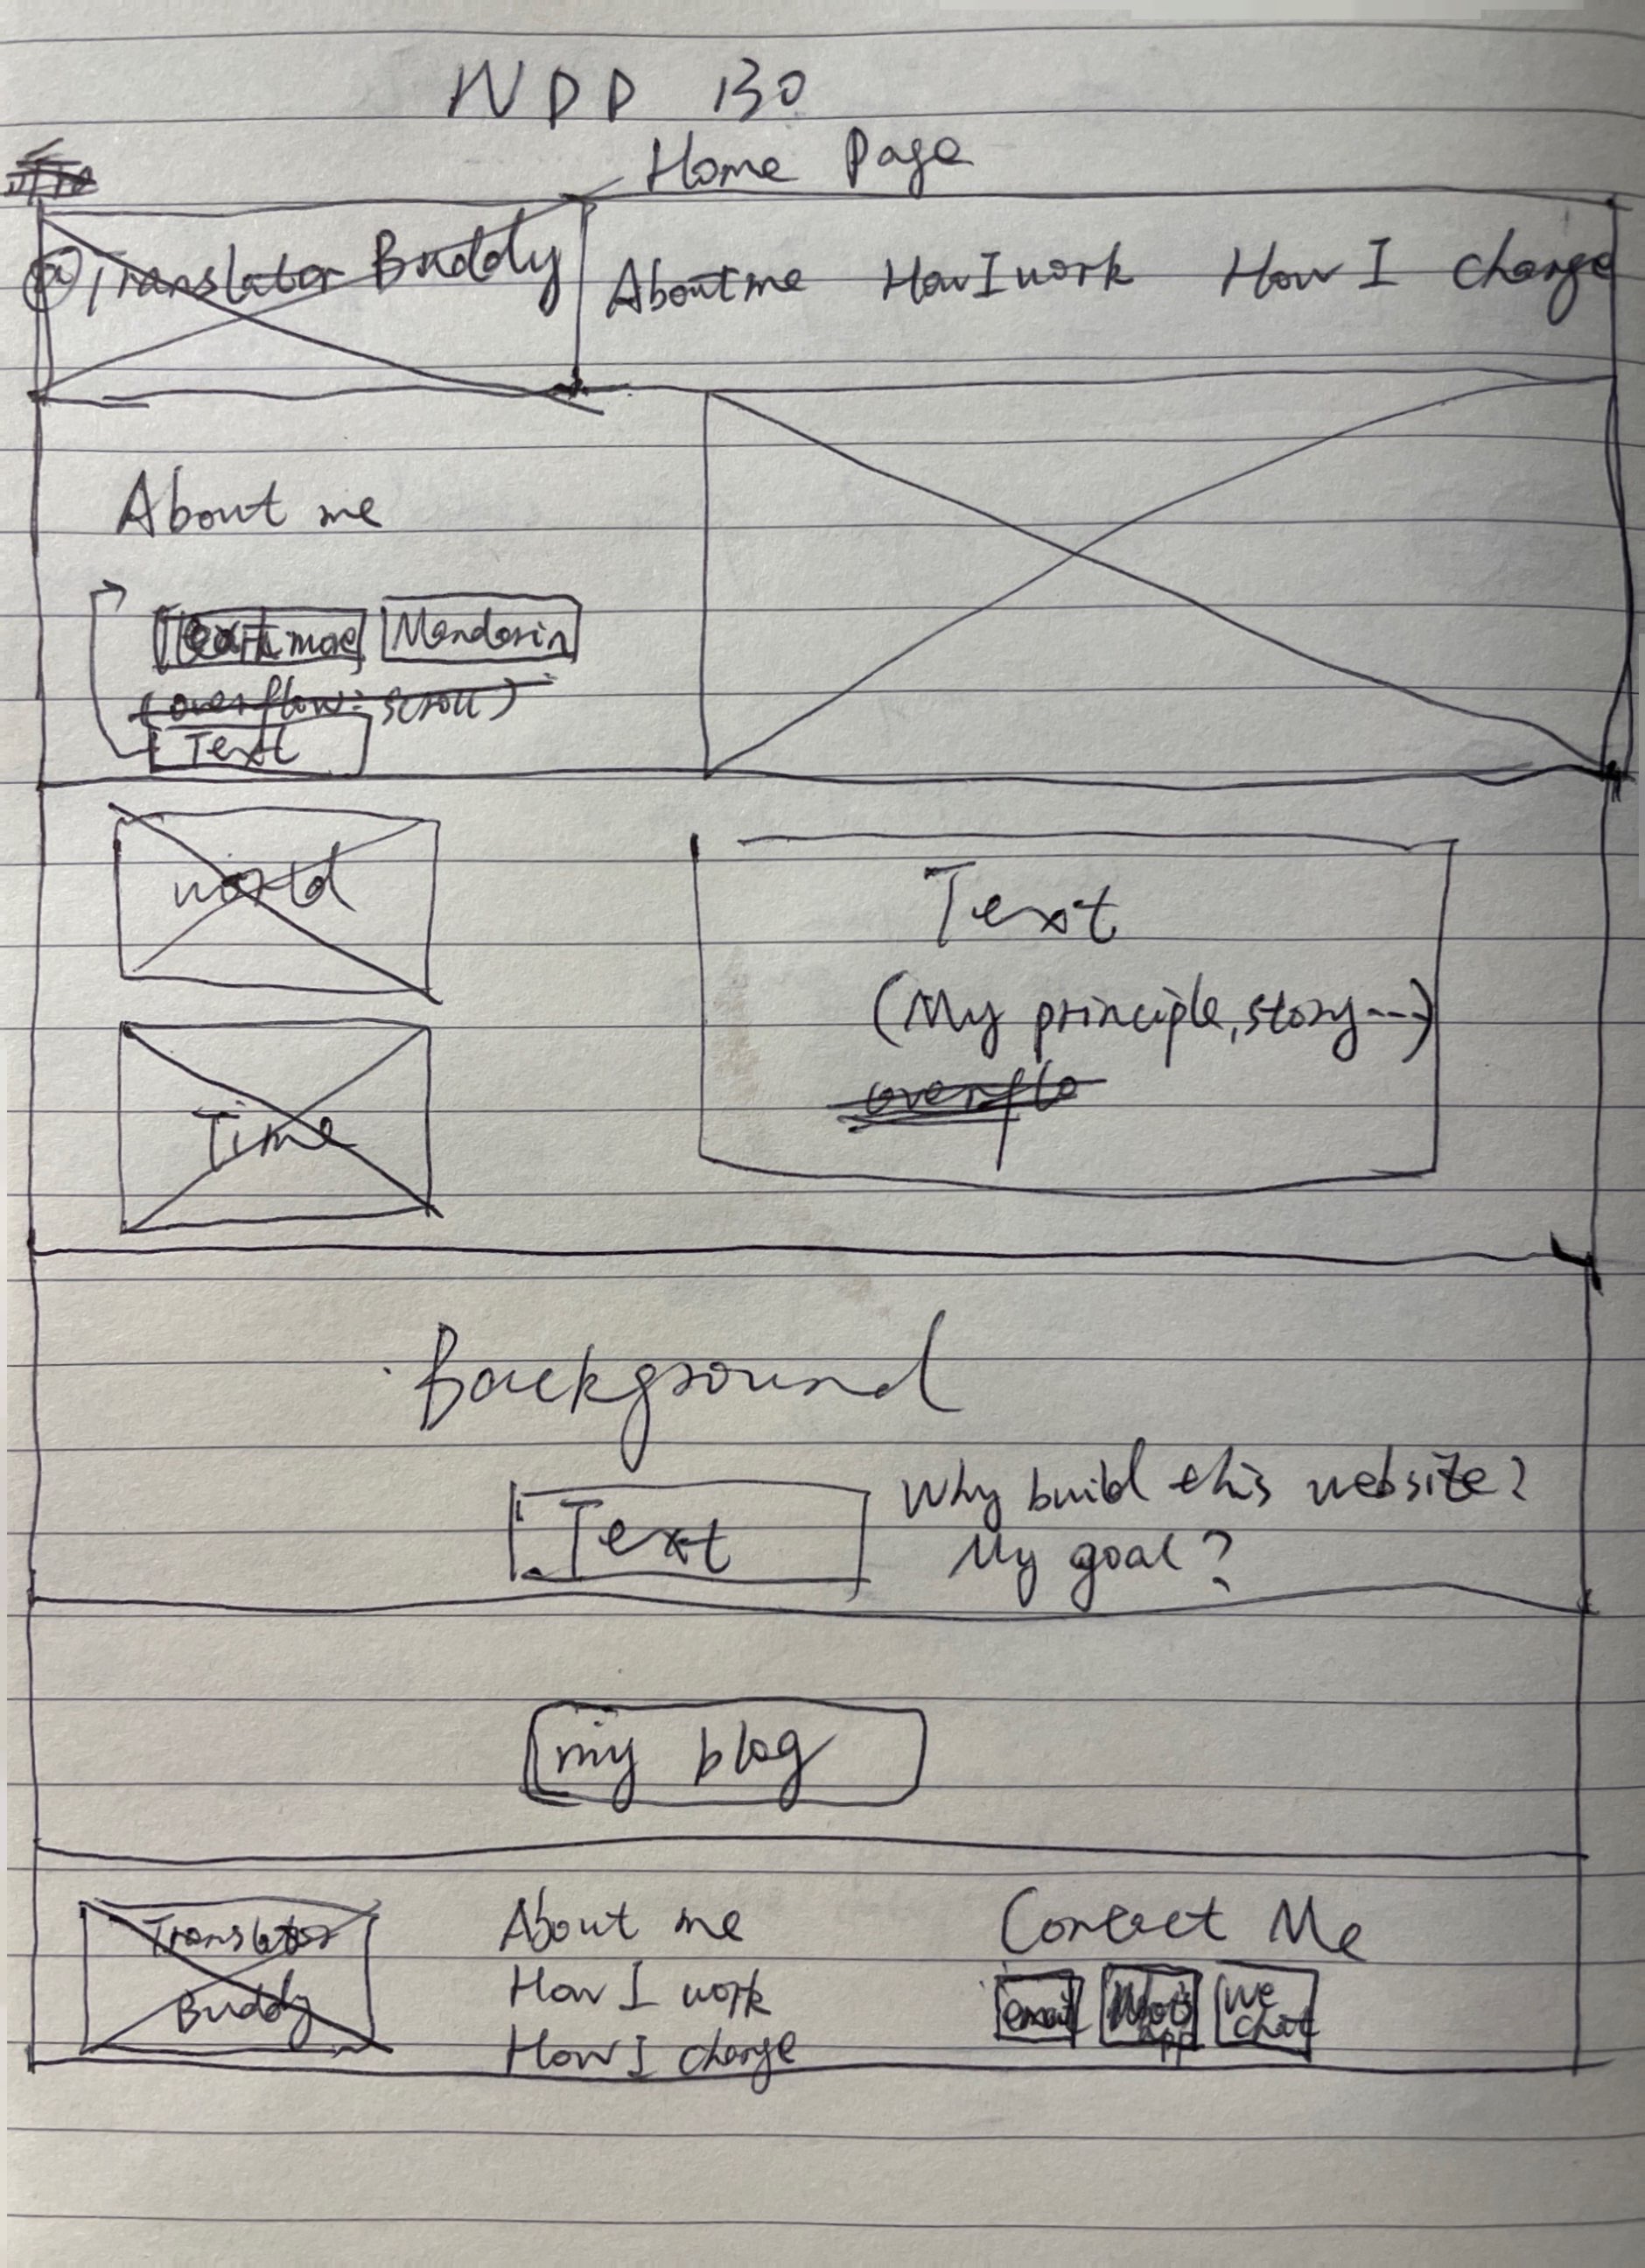 WDD 130
Home Page
@Translator Buddy About me How I work How I change
About me
Mandarin
(overflow: scroll)
Text
world
Text
(My principle, story---)
overflo
Time
Background
Text
Why build this website?
My goal?
my blog
Translator
Buddy
About me
How I work
How I change
Contact Me
email
Whats
App
We
Chat